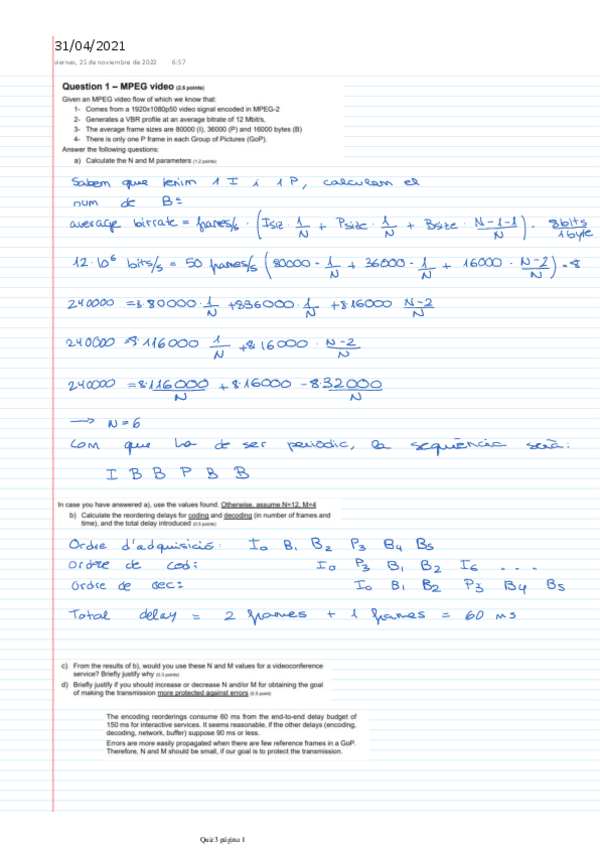 31/04/2021
viernes, 25 de noviembre de 2022 6:57
Question 1 – MPEG video (2.5 points)
Given an MPEG video flow of which we know that:
1- Comes from a 1920x1080p50 video signal encoded in MPEG-2
2- Generates a VBR profile at an average bitrate of 12 Mbit/s,
3- The average frame sizes are 80000 (I), 36000 (P) and 16000 bytes (B)
4- There is only one P frame in each Group of Pictures (GoP).
Answer the following questions:
a) Calculate the N and M parameters (1.2 points)
Sabem que tenim 1 I i 1 P, calculem el
num de B's
average bitrate = frames/s · (Isiz · 1/N + Psize · 1/N + Bsize · N-1-1/N) · 8bits/1byte
12·10⁶ bits/s = 50 frames/s (80000 · 1/N + 36000 · 1/N + 16000 · N-2/N) · 8
240000 = 8·80000·1/N + 8·36000·1/N + 8·16000 N-2/N
240000 = 8·116000 1/N + 8·16000 · N-2/N
240000 = 8·116000/N + 8·16000 - 8·32000/N
→ N=6
Com que ha de ser periòdic, la seqüència serà:
I B B P B B
In case you have answered a), use the values found. Otherwise, assume N=12, M=4
b) Calculate the reordering delays for coding and decoding (in number of frames and
time), and the total delay introduced (0.5 points)
Ordre d'adquisició: I0 B1 B2 P3 B4 B5
Ordre de cod: I0 P3 B1 B2 I6 ...
Ordre de dec: I0 B1 B2 P3 B4 B5
Total delay = 2 frames + 1 frames = 60 ms
c) From the results of b), would you use these N and M values for a videoconference
service? Briefly justify why (0.3 points)
d) Briefly justify if you should increase or decrease N and/or M for obtaining the goal
of making the transmission more protected against errors (0.5 point)
The encoding reorderings consume 60 ms from the end-to-end delay budget of
150 ms for interactive services. It seems reasonable, if the other delays (encoding,
decoding, network, buffer) suppose 90 ms or less.
Errors are more easily propagated when there are few reference frames in a GoP.
Therefore, N and M should be small, if our goal is to protect the transmission.
Quiz 3 página 1